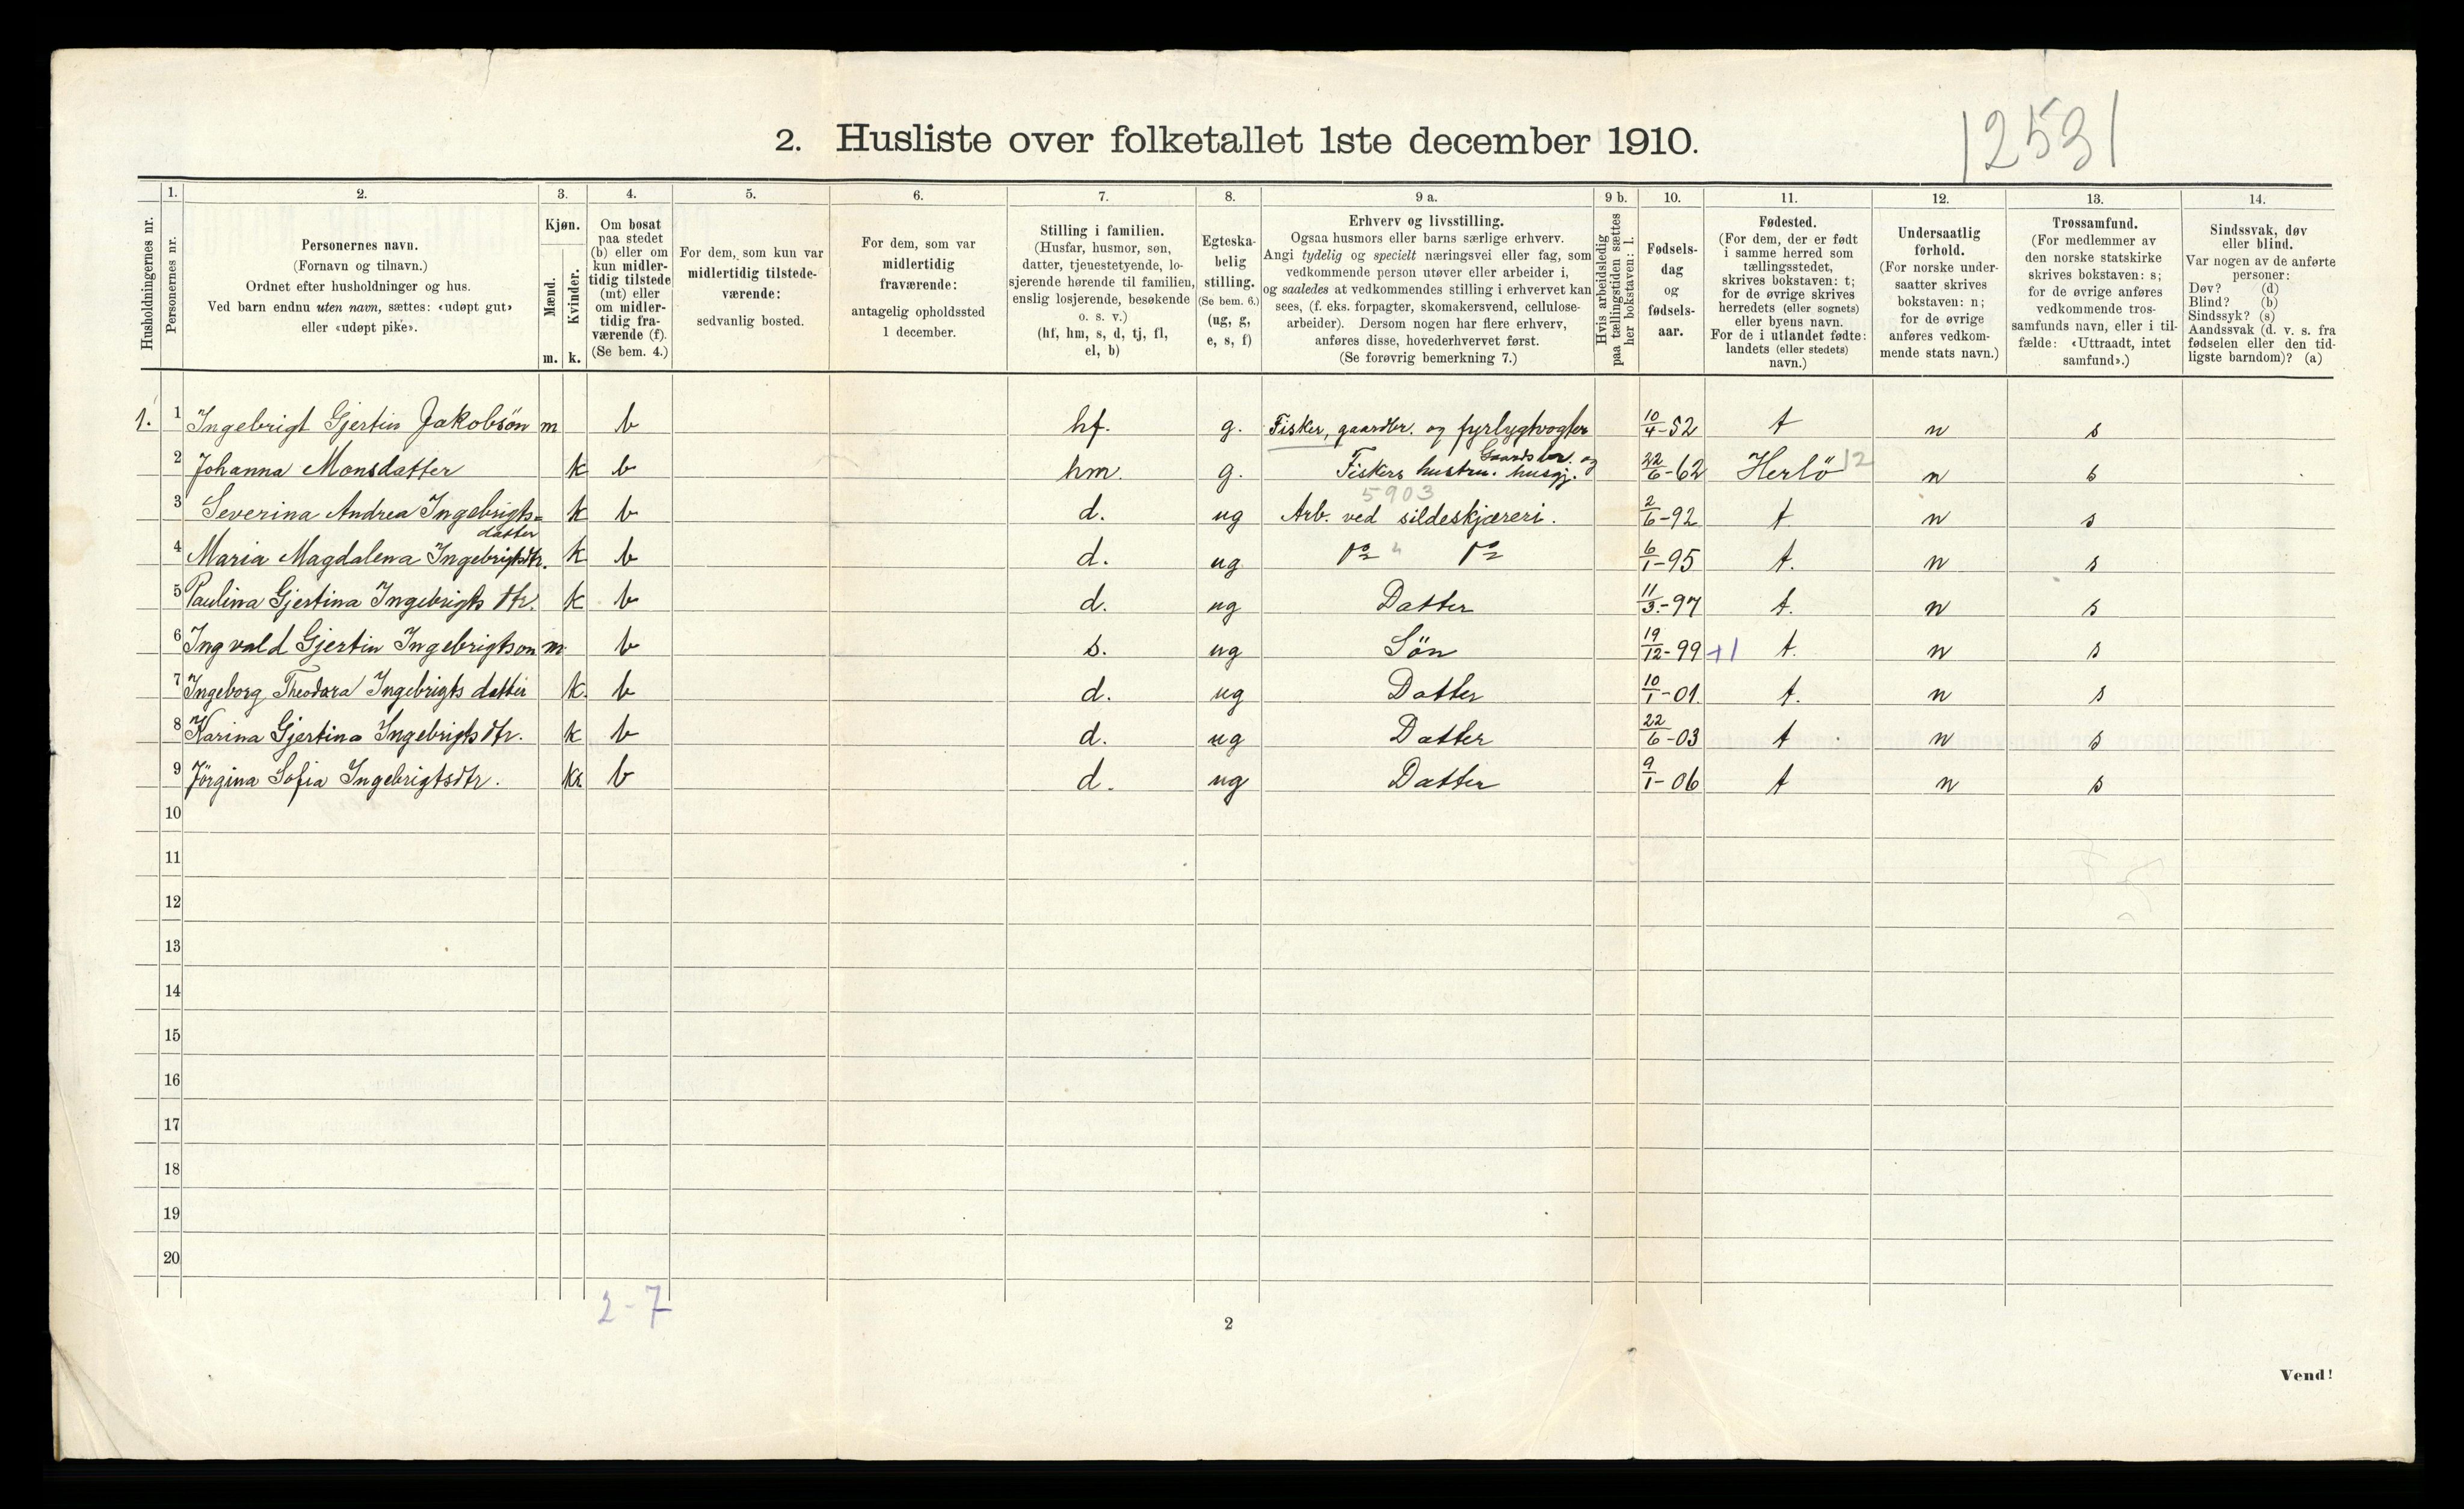 2. Husliste over folketallet 1ste december 1910.
12531
Husholdningernes nr.
1.
Personernes nr.
2.
Personernes navn.
(Fornavn og tilnavn.)
Ordnet efter husholdninger og hus.
Ved barn endnu uten navn, sættes: «udøpt gut»
eller «udøpt pike».
3.
Kjøn.
Mænd.
Kvinder.
m. k.
4.
Om bosat
paa stedet
(b) eller om
kun midler-
tidig tilstede
(mt) eller
om midler-
tidig fra-
værende (f).
(Se bem. 4.)
5.
For dem, som kun var
midlertidig tilstede-
værende:
sedvanlig bosted.
6.
For dem, som var
midlertidig
fraværende:
antagelig opholdssted
1 december.
7.
Stilling i familien.
(Husfar, husmor, søn,
datter, tjenestetyende, lo-
sjerende hørende til familien,
enslig losjerende, besøkende
o. s. v.)
(hf, hm, s, d, tj, fl,
el, b)
8.
Egteska-
belig
stilling.
(Se bem. 6.)
(ug, g,
e, s, f)
9 a.
Erhverv og livsstilling.
Ogsaa husmors eller barns særlige erhverv.
Angi tydelig og specielt næringsvei eller fag, som
vedkommende person utøver eller arbeider i,
og saaledes at vedkommendes stilling i erhvervet kan
sees, (f. eks. forpagter, skomakersvend, cellulose-
arbeider). Dersom nogen har flere erhverv,
anføres disse, hovederhvervet først.
(Se forøvrig bemerkning 7.)
9 b.
Hvis arbeidsledig
paa tællingstiden sættes
her bokstaven: l.
10.
Fødsels-
dag
og
fødsels-
aar.
11.
Fødested.
(For dem, der er født
i samme herred som
tællingsstedet,
skrives bokstaven: t;
for de øvrige skrives
herredets (eller sognets)
eller byens navn.
For de i utlandet fødte:
landets (eller stedets)
navn.)
12.
Undersaatlig
forhold.
(For norske under-
saatter skrives
bokstaven: n;
for de øvrige
anføres vedkom-
mende stats navn.)
13.
Trossamfund.
(For medlemmer av
den norske statskirke
skrives bokstaven: s;
for de øvrige anføres
vedkommende tros-
samfunds navn, eller i til-
fælde: «Uttraadt, intet
samfund».)
14.
Sindssvak, døv
eller blind.
Var nogen av de anførte
personer:
Døv? (d)
Blind? (b)
Sindssyk? (s)
Aandssvak (d. v. s. fra
fødselen eller den tid-
ligste barndom)? (a)
1. 1 Ingebrigt Gjertin Jakobsön m b hf. g. Fisker, gaardbr. og fyrlygtvogter 10/4-52 t n s
Gaardsbr. og
2 Johanna Monsdatter k b hm. g. Fiskers hustru. husgj. 22/6-62 Herlö 12 n s
5903
3 Severina Andrea Ingebrigts= k b d. ug Arb. ved sildeskjæreri. 2/6-92 t n s
datter
4 Maria Magdalena Ingebrigtsdtr. k b d. ug do " do 6/1-95 t. n s
5 Paulina Gjertina Ingebrigts dtr. k b d. ug Datter 11/3.-97 t. n s
6 Ingvald Gjertin Ingebrigtson m b s. ug Sön 19/12-99 +1 t. n s
7 Ingeborg Theodora Ingebrigts datter k. b d. ug Datter 10/1-01. t. n s
8 Karina Gjertina Ingebrigtsdtr. k b d. ug Datter 22/6-03 t n s
9 Jörgina Sofia Ingebrigtsdtr. k. b d. ug Datter 9/1-06 t n s
10
11
12
13
14
15
16
17
18
19
20
2-7
2
Vend!